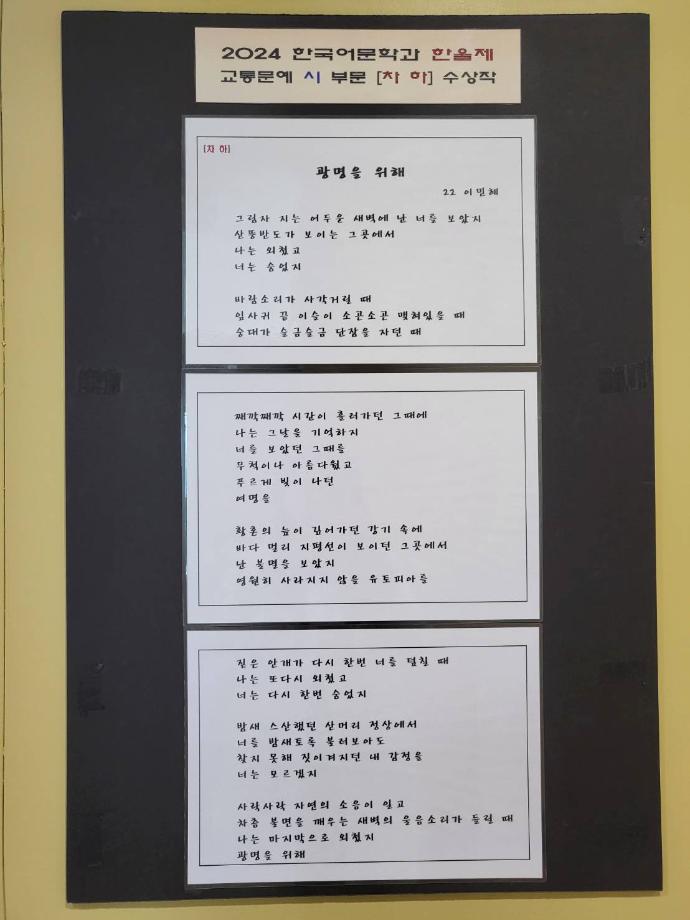 2024 한국어문학과 한울제
교통문예 시 부문 [차 하] 수상작
[차 하]
광명을 위해
22 이민혜
그림자 지는 어두운 새벽에 난 너를 보았지
산등반도가 보이는 그곳에서
나는 외쳤고
너는 숨었지
바람소리가 사각거릴 때
잎사귀 끝 이슬이 소곤소곤 맺혀있을 때
승대가 슬금슬금 단잠을 자던 때
째깍째깍 시간이 흘러가던 그때에
나는 그날을 기억하지
너를 보았던 그때를
무척이나 아름다웠고
푸르게 빛이 나던
여명을
황혼의 늪이 깊어가던 강기 속에
바다 멀리 지평선이 보이던 그곳에서
난 불멸을 보았지
영원히 사라지지 않을 유토피아를
짙은 안개가 다시 한번 너를 덮칠 때
나는 또다시 외쳤고
너는 다시 한번 숨었지
밤새 스산했던 산머리 정상에서
너를 밤새도록 불러보아도
찾지 못해 짓이겨지던 내 감정을
너는 모르겠지
사락사락 자연의 소음이 일고
차츰 불면을 깨우는 새벽의 울음소리가 들릴 때
나는 마지막으로 외쳤지
광명을 위해